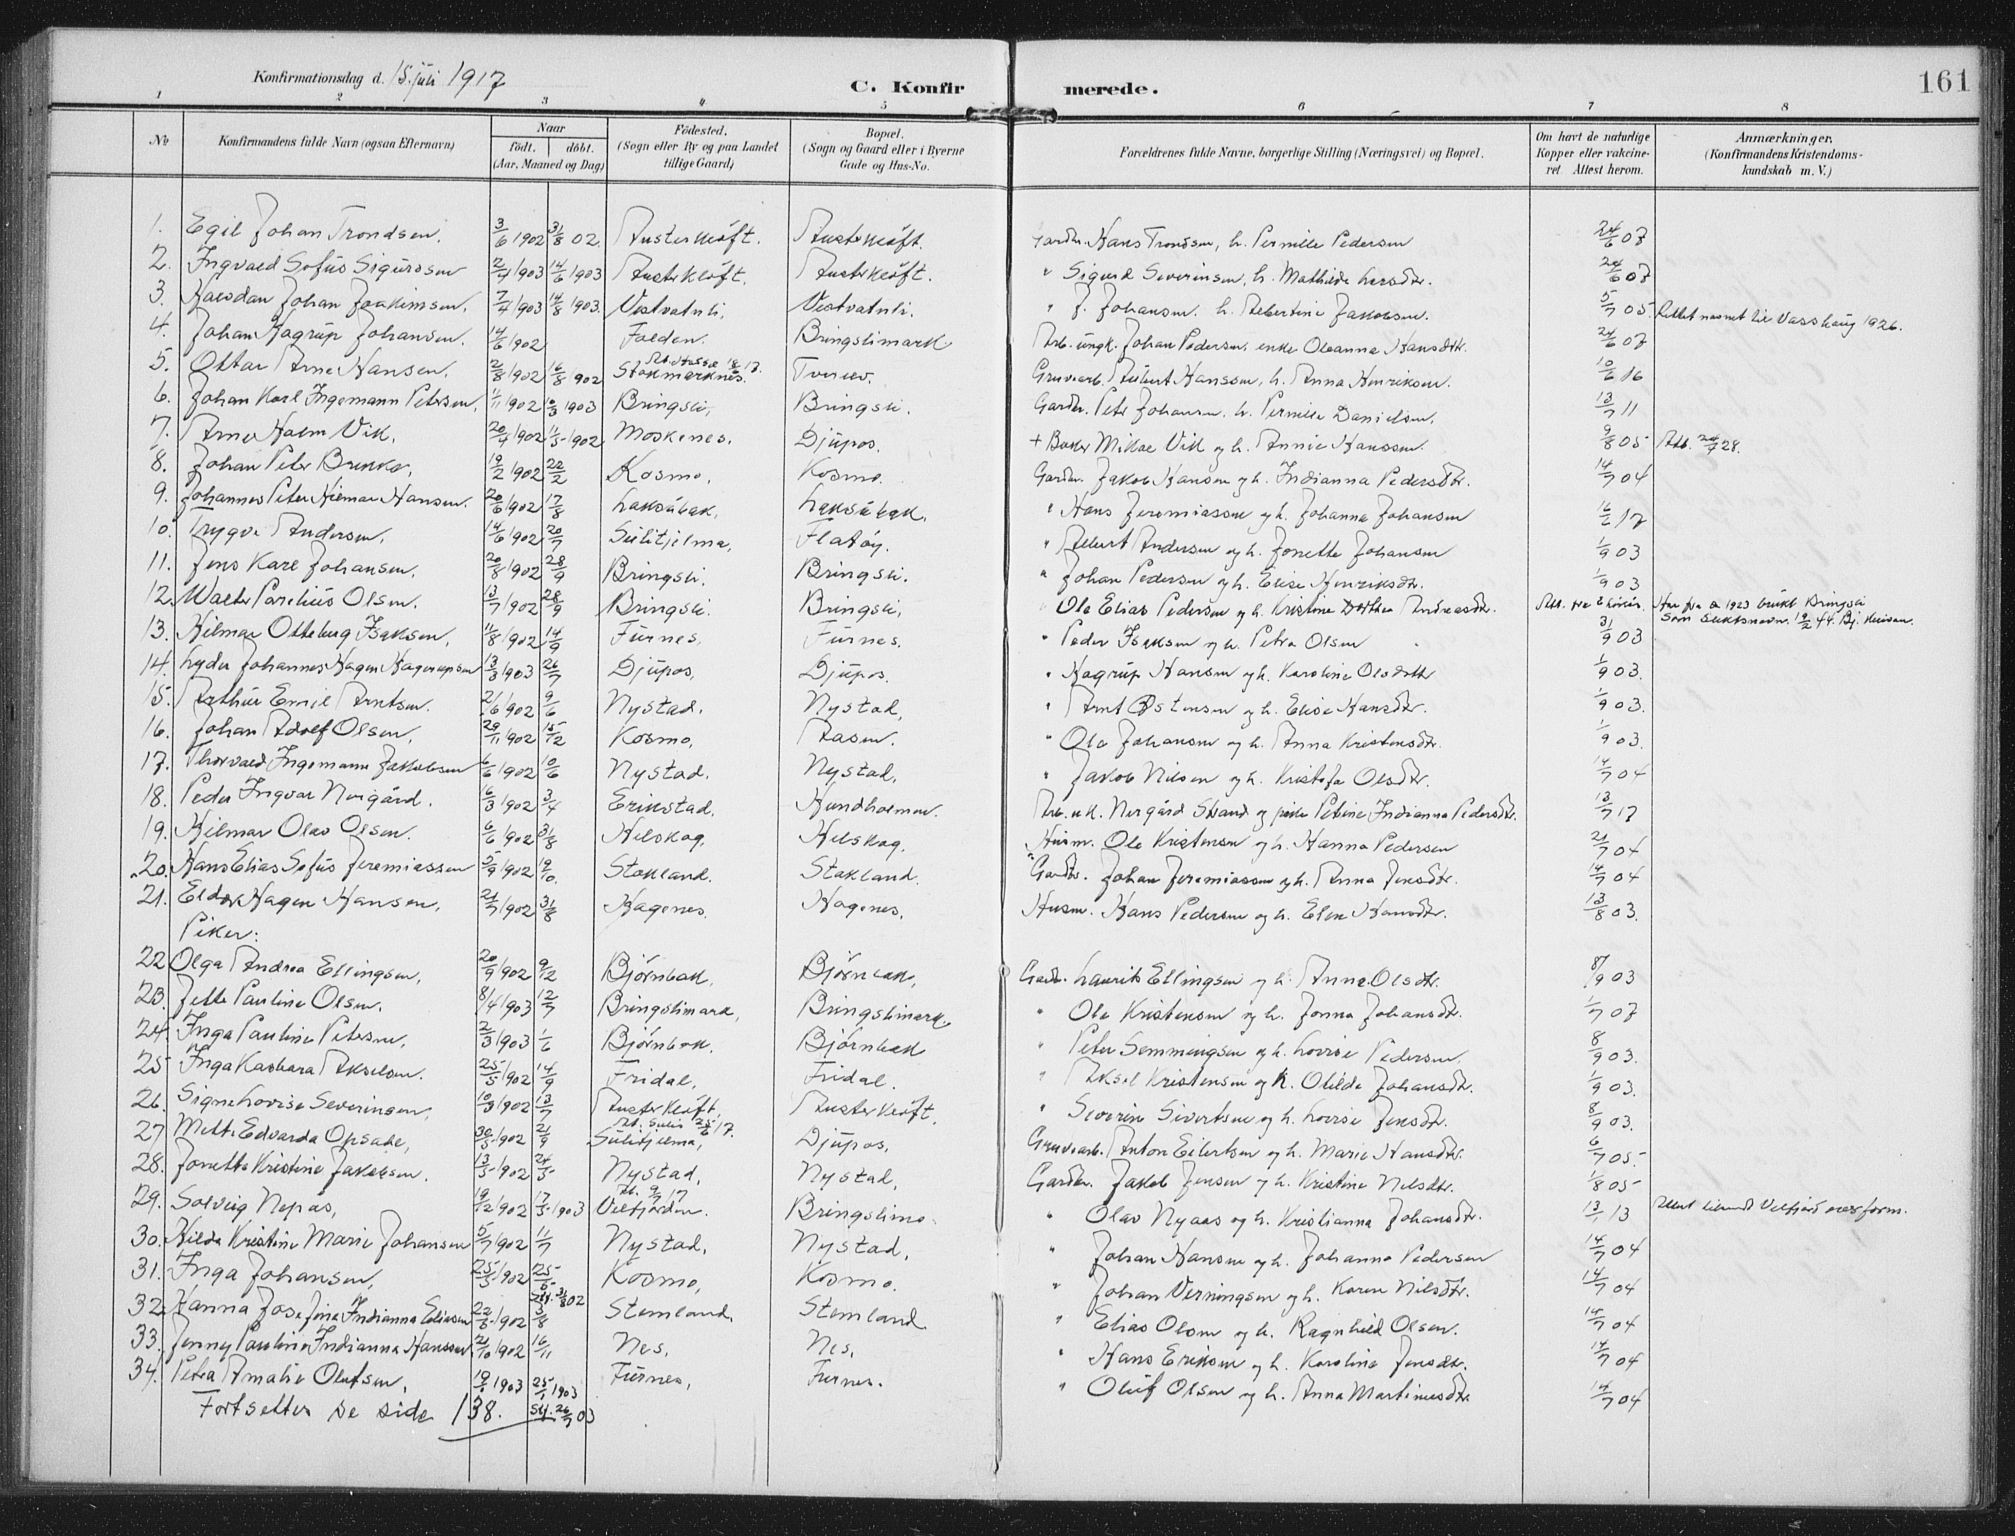 161
Konfirmationsdag d. 15. juli 1917
C. Konfirmerede.
1 2 3 4 5 6 7 8
№ Konfirmandens fulde Navn (ogsaa Efternavn) Naar født. døbt. (Aar, Maaned og Dag) Fødested. (Sogn eller By og paa Landet tillige Gaard) Bopæl. (Sogn og Gaard eller i Byerne Gade og Hus-No. Forældrenes fulde Navne, borgerlige Stilling (Næringsvei) og Bopæl. Om havt de naturlige Kopper eller vakcineret. Attest herom. Anmærkninger. (Konfirmandens Kristendomskundskab m. V.)
1. Egil Johan Trondsen. 3/6 1902 31/8 02. Austerkløft. Austerkløft. Gardbr. Hans Trondsen, h. Pernille Pedersen 24/6 07
2. Ingvald Sofus Sigurdsen 2/4 1903 14/6 1903 Austerkløft. Austerkløft. " Sigurd Severinsen, h. Mathilde Larsdtr. 24/6 07
3. Halvdan Johan Joakimsen. 7/4 1903 14/8 1903. Vestvatnli. Vestvatnli. " J. Johansen. h. Albertine Jakobsen. 5/7 05. Rettet navnet til Vasshaug 1926.
4. Johan Hagrup Johansen. 14/6 1902 Falden. Bringslimark Arb. ungk. Johan Pedersen, enke Oleanna Hansdtr. 24/6 07
5. Ottar Arne Hansen. 2/8 1902 16/8 902 Stokmarknes. Tverelv. Gruvearb. Hansson, h. Anna Henriksen. 10/6 16
6. Johan Karl Ingemann Petersen. 1/11 1902 10/3 1903 Bringsli, Bringsli. Gardbr. Peter Johansen. h. Pernille Danielsen. 13/7 11
7. Arne Holm Vik. 20/4 1902 11/5 1902 Moskenes. Djupos. + Baker Mikal Vik og h. Annie Hanssen. 9/8 05 Atb. 24/7 28.
8. Johan Peter Brenke. 19/2 1902 22/2 Kosmo, Kosmo. Gardbr. Jakob Hansen og h. Indianna Pedersdtr. 14/7 04
9. Johannes Peter Hilmar Hansen. 20/6 1902 17/8 Laksåbak, Laksåbak. " Hans Jeremiassen og h. Johanna Johansen 6/2 17
10. Trygve Andersen. 14/6 1902 20/7 Sulitjelma, Flatøy. " Albert Andersen og h. Jonette Johansen 1/9 03
11. Jens Karl Johansen. 20/8 1902 28/9 Bringsli. Bringsli. " Johan Pedersen og h. Elise Henriksdtr. 1/9 03
12. Walter Parelius Olsen. 13/7 1902 28/9 Bringsli. Bringsli, " Ole Elias Pedersen og h. Kristine Dorthea Andreasdtr. Har fra a 1923 brukt Bringsli som slektsnavn. 19/2 44.
13. Hilmar Otteberg Isaksen, 11/8 1902 14/9 Furnes. Furnes. " Peder Isaksen og h. Petra Olsen 31/9 03
14. Lyder Johannes Hagen Hagerupsen 13/3 1903 26/7 Djupos. Djupos. " Hagrup Hansen og h. Karoline Olsdotter 1/9 03.
15. Arthur Emil Arntsen. 2/6 1902 9/6 Nystad. Nystad, " Arnt Østensen og h. Elise Hansdtr. 1/9 03.
16. Johan Adolf Olsen. 29/11 1902 15/12 Kosmo, Aasen. " Ole Johansen og h. Anna Kristensdtr. 1/9 03.
17. Thorvald Ingemann Jakobsen 6/6 1902 10/6 Nystad. Nystad, " Jakob Nilsen og h. Kristofa Olsdtr. 14/7 04
18. Peder Ingvar Norgård. 16/3 1902 3/4 Erikstad. Hundholmen. Arb. u.k. Norgård Strand og pike Petrine Indianna Pedersdtr. 13/7 17
19. Hilmar Olav Olsen. 6/6 1902 31/8 Nilskog, Nilskog, Husm. Ole Kristensen og h. Hanna Pedersen 21/7 04
20. Hans Elias Sofus Jeremiassen 5/9 1902 19/10. Stokland. Stakland. Gardbr. Johan Jeremiassen og h. Anna Jensdtr. 14/7 04
21. Eldor Hagen Hansen, 21/7 1902 31/8 Hagenes. Hagenes, Husm. Hans Pedersen og h. Elen Hansdtr. 13/8 03.
Piker:
22 Olga Andrea Ellingsen, 20/9 1902 9/12 Bjørnbak, Bjørnbak, Gardbr. Laurits Ellingsen og h. Anna Olsdtr. 8/9 03
23. Jette Pauline Olsen. 8/4 1903 12/7 Bringslimark, Bringslimark " Ole Kristensen og h. Jonna Johansdtr. 1/7 07
24. Inga Pauline Petersen, 2/3 1903 1/6 Bjørnbak. Bjørnbak " Peter Semmingsen og h. Lovise Pedersen. 8/9 03.
25 Inga Kasbara Akselsen. 25/5 1902 14/9 Fridal, Fridal. " Aksel Kristensen og h. Otilde Johansdtr. 1/9 03.
26. Signe Lovise Severinsen 10/3 1902 13/7 Austerkløft. Austerkløft. " Severin Sivertsen og h. Lovise Jensdtr. 8/9 03.
27 Mette Edvarda Opsahl, 30/5 1902 21/9 Sulitjelma, Djupos. Gruvearb. Anton Eilertsen og h. Marie Hansdtr. 6/7 05.
28. Jonette Kristine Jakobsen. 13/5 1902 24/5 Nystad, Nystad, Gardbr. Jakob Jensen og h. Kristine Nilsdtr. 1/8 05
29. Solveig Nepås, 19/12 1902 17/5 1903 Velfjorden. Bringslimo. " Olav Nyaas og h. Kristianna Johansdtr. 13/1 13
30. Hilda Kristine Marie Johansen 5/7 1902 11/7 Nystad, Nystad, " Johan Hansen og h. Johanna Pedersen 14/7 04
31. Inga Johansen, 25/5 1902 25/5 Kosmo, Kosmo. " Johan Verningsen og h. Karen Nilsdtr. 14/7 04
32. Hanna Josefine Indianna Eliassen 22/8 1902 3/8 Stemland, Stemland. " Elias Olsen og h. Ragnhild Olsen. 14/7 04
33. Jenny Pauline Indianna Hanssen 2/10 1902 16/11 Nes, Nes, " Hans Eriksen og h. Karoline Jensdtr. 14/7 04
34. Petra Amalie Olufsen, 19/1 1903 25/1 1903 Furnes, Furnes. " Oluf Olsen og h. Anna Martinusdtr 14/7 04
Fortsettes se side 138. St. 26/7 03